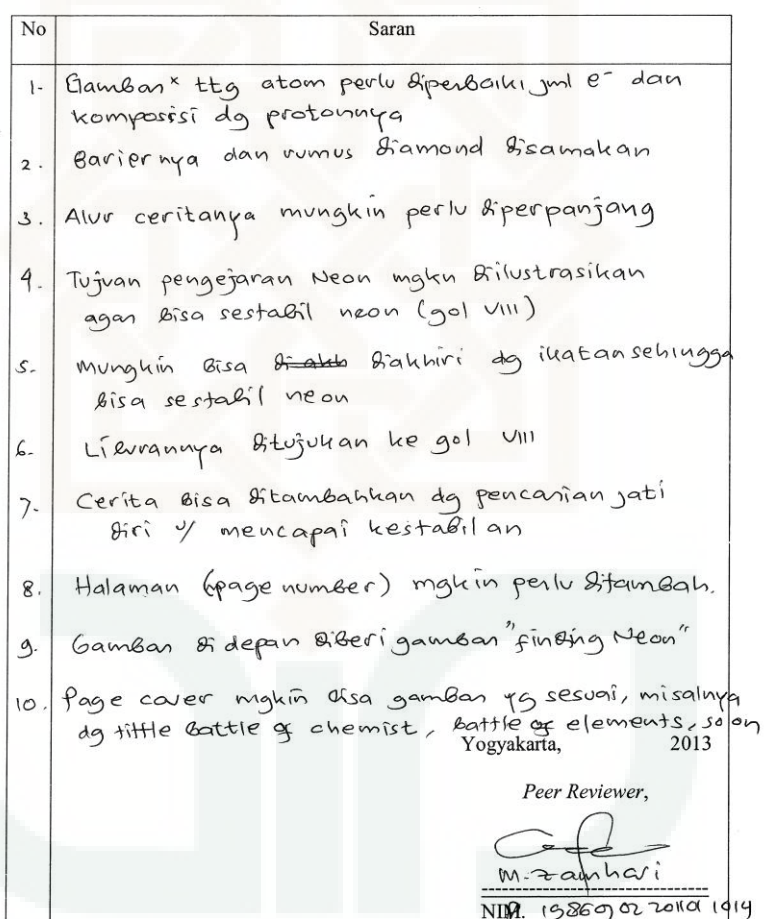 No Saran
1- Gambar× ttg atom perlu diperbaiki jml e⁻ dan
komposisi dg protonnya
2. Bariernya dan rumus diamond disamakan
3. Alur ceritanya mungkin perlu diperpanjang
4. Tujuan pengejaran Neon mgkn diilustrasikan
agar bisa sestabil neon (gol VIII)
5. Mungkin bisa diakhiri dg ikatan sehingga
bisa sestabil neon
6. Liburannya ditujukan ke gol VIII
7. Cerita bisa ditambahkan dg pencarian jati
diri u/ mencapai kestabilan
8. Halaman (page number) mgkin perlu ditambah.
9. Gambar di depan diberi gambar "finding Neon"
10. Page cover mgkin bisa gambar yg sesuai, misalnya
dg tittle battle of chemist, battle of elements, so on
Yogyakarta, 2013
Peer Reviewer,
M. Zamhari